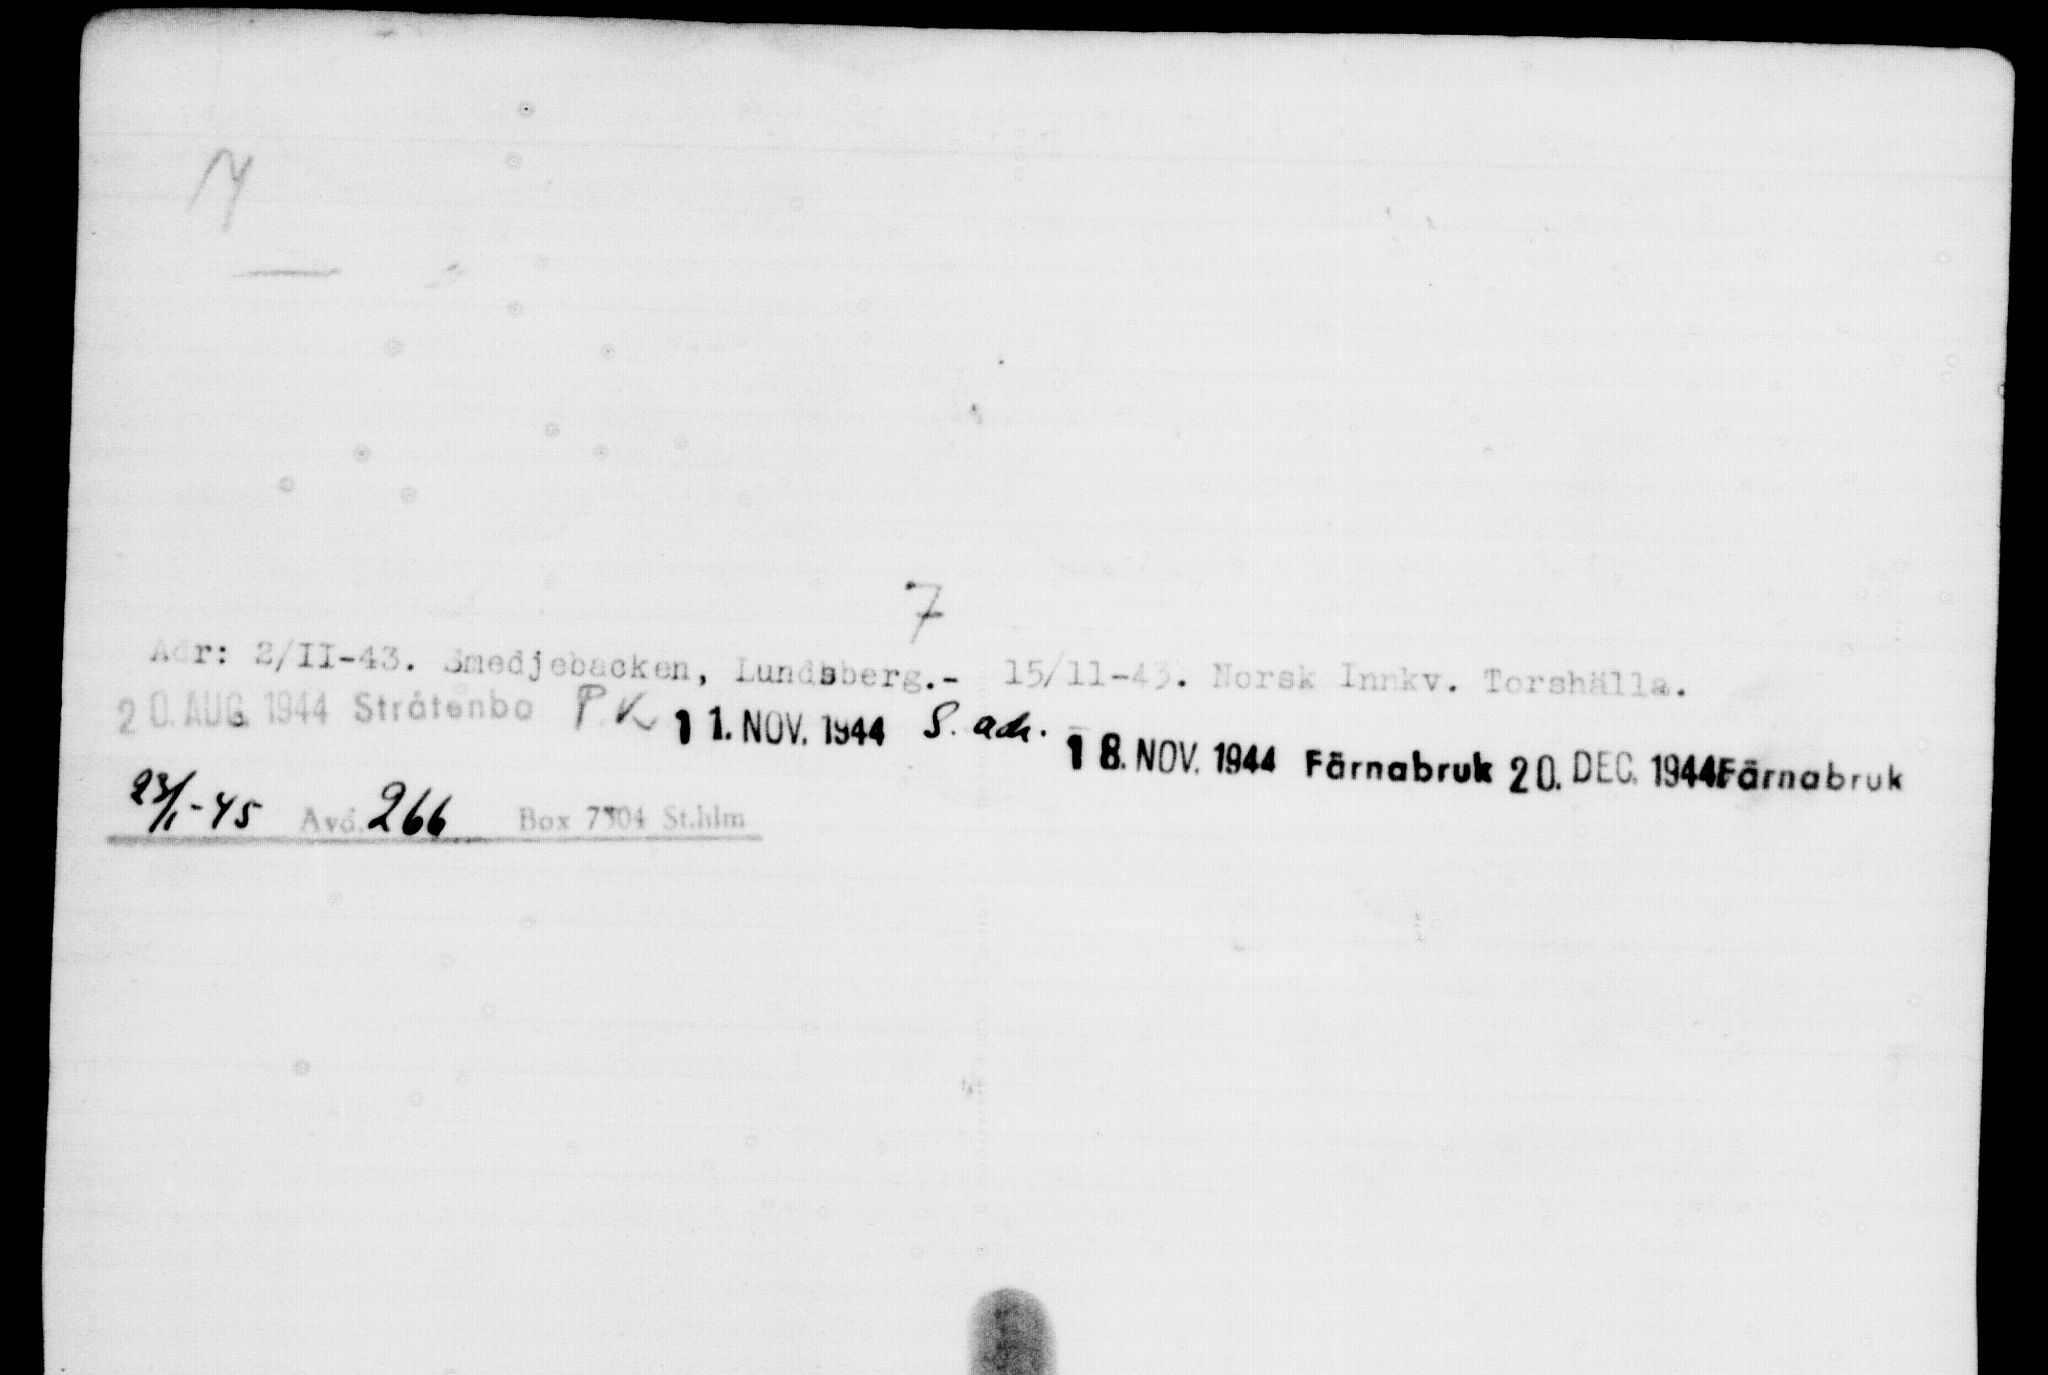 7
Adr: 2/II-43. Smedjebacken, Lundsberg.- 15/11-43. Norsk Innkv. Torshälla.
20. AUG. 1944 Stråtenbo P.K 11. NOV. 1944 S. adr. 18. NOV. 1944 Färnabruk 20. DEC. 1944 Färnabruk
23/1-45 Avd. 266 Box 7304 St.hlm